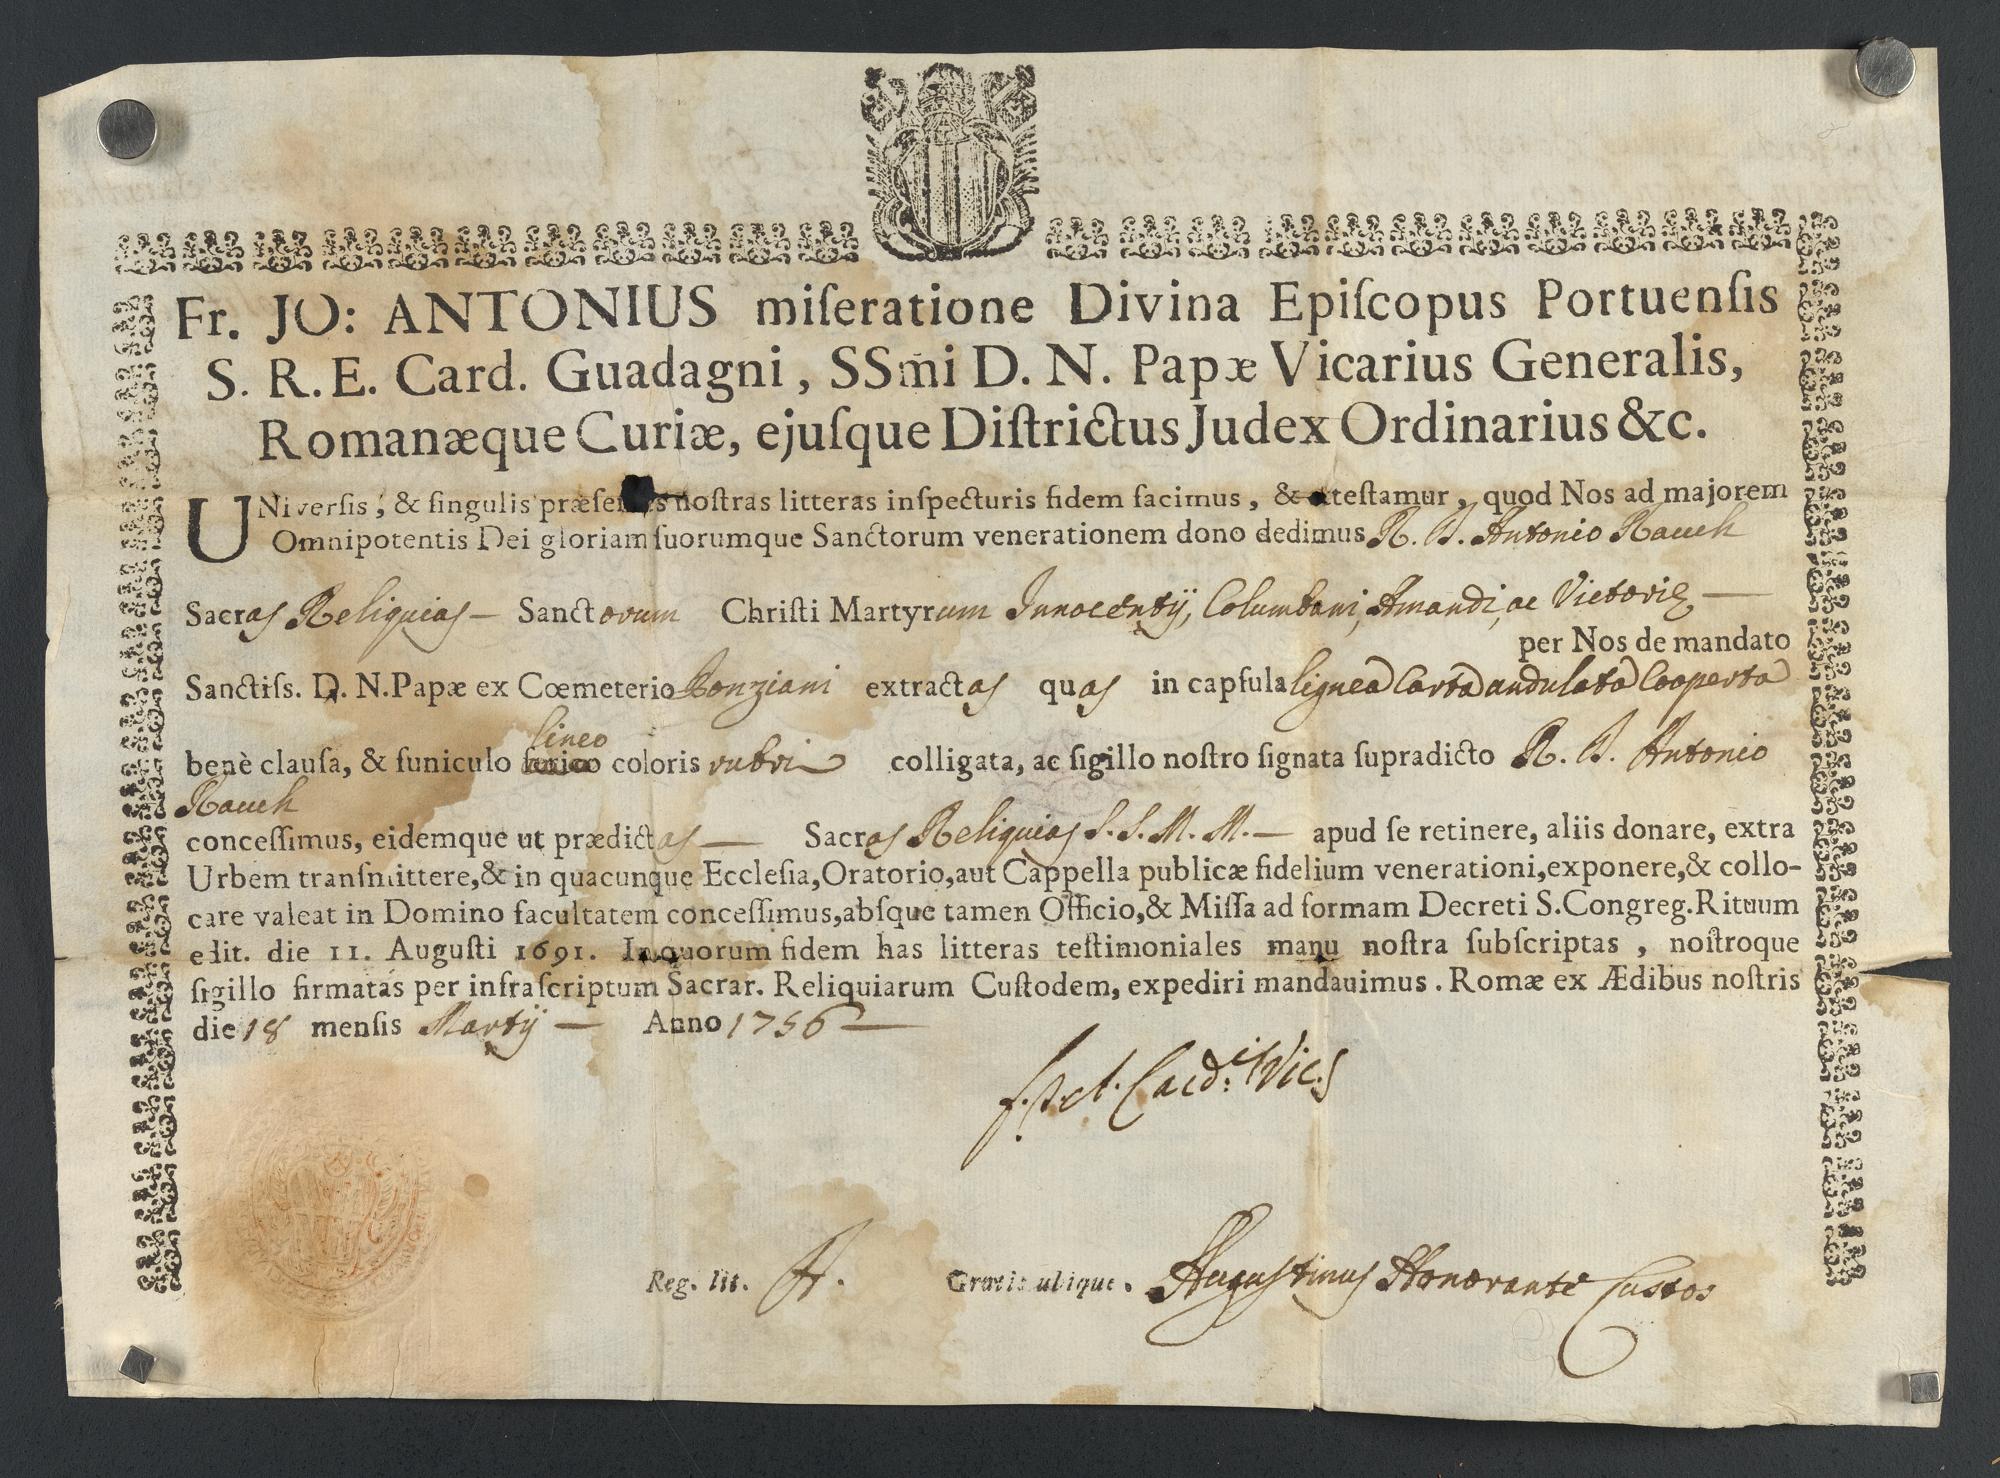 Fr. JO: ANTONIUS miſeratione Divina Epiſcopus Portuenſis
S. R. E. Card. Guadagni, SSm̄i D. N. Papæ Vicarius Generalis,
Romanæque Curiæ, ejuſque Diſtrictus Judex Ordinarius &c.
UNiverſis, & ſingulis præſentes noſtras litteras inſpecturis fidem facimus, & atteſtamur, quod Nos ad majorem
Omnipotentis Dei gloriam ſuorumque Sanctorum venerationem dono dedimus R. D. Antonio Rauch
Sacras Reliquias — Sanctorum Chriſti Martyrum Innocentij, Columbani, Amandi, ac Victoriæ —
per Nos de mandato
Sanctiſs. D. N. Papæ ex Cœmeterio Ponziani extractas quas in capſula lignea Carta undulata Cooperta
lineo
benè clauſa, & funiculo ſerico coloris rubri colligata, ac ſigillo noſtro ſignata ſupradicto R. D. Antonio
Rauch
conceſſimus, eidemque ut prædictas — Sacras Reliquias S. S. M. M. — apud ſe retinere, aliis donare, extra
Urbem tranſmittere, & in quacunque Eccleſia, Oratorio, aut Cappella publicæ fidelium venerationi, exponere, & collo-
care valeat in Domino facultatem conceſſimus, abſque tamen Officio, & Miſſa ad formam Decreti S. Congreg. Rituum
edit. die 11. Auguſti 1691. In quorum fidem has litteras teſtimoniales manu noſtra ſubſcriptas, noſtroque
ſigillo firmatas per infraſcriptum Sacrar. Reliquiarum Cuſtodem, expediri mandauimus. Romæ ex Ædibus noſtris
die 18 menſis Martij — Anno 1756 —
Card. Vic.
Reg. lit. Gratis ubique. Augustinus Honorante Custos